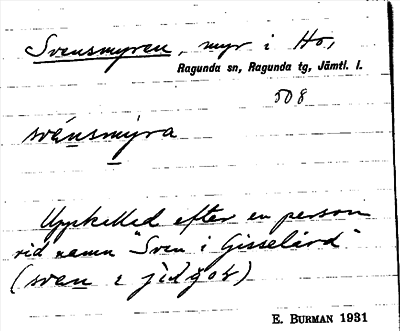 Svensmyren, myr i Ho,
Ragunda sn, Ragunda tg, Jämtl. l.
508
svénsmýra
Uppkallad efter en person
vid namn "Sven i Gisselård"
(sven i
E. BURMAN 1931